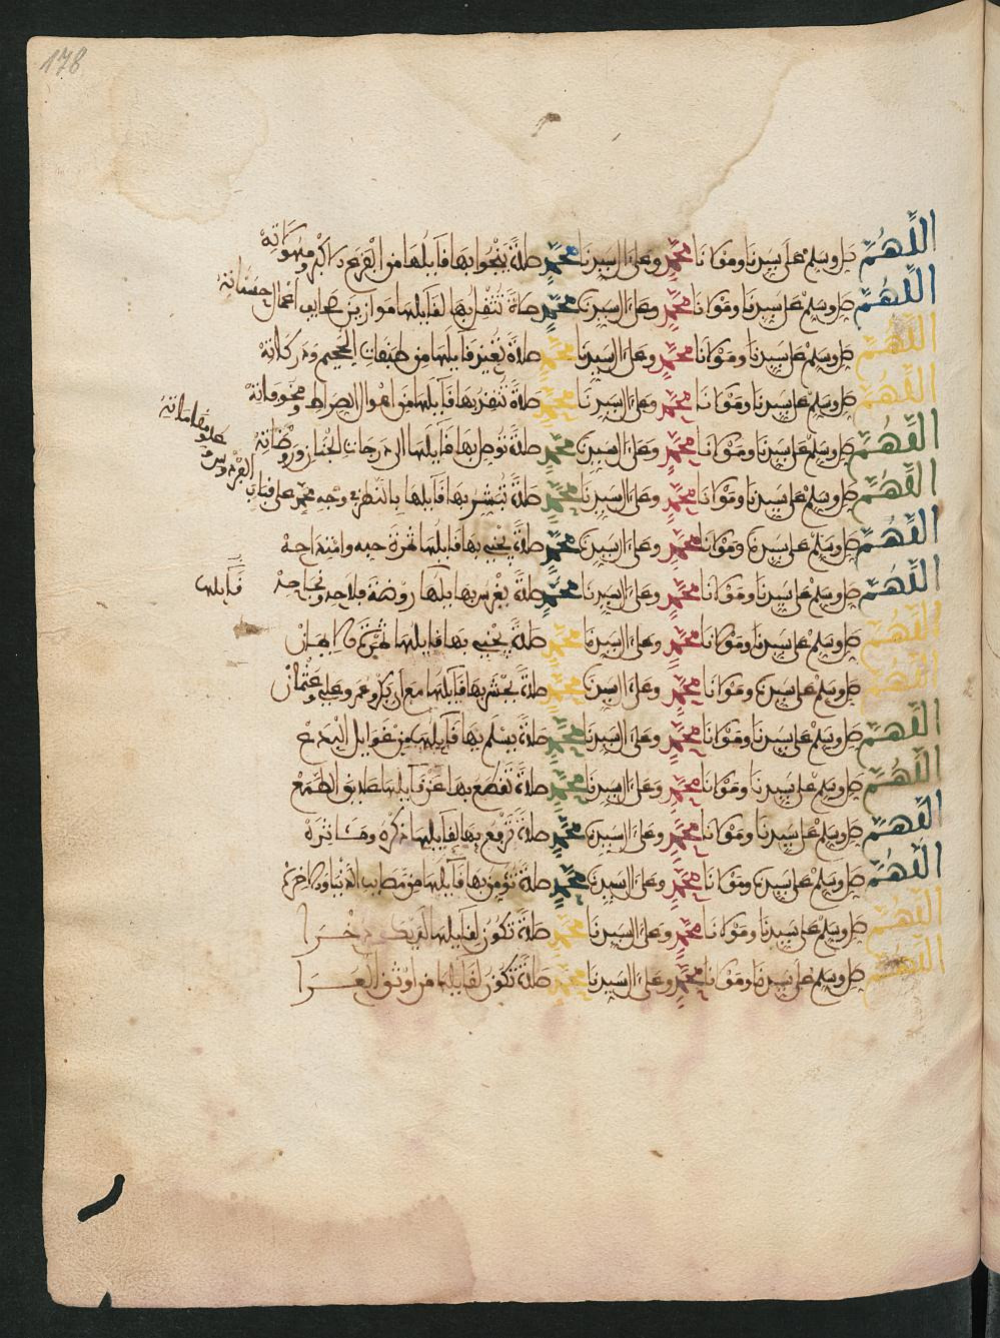 178
اللهم صل وسلم على سيدنا ومولانا محمد وعلى ال سيدنا محمد صلاة ينجوا بها قايلها من الفزع الاكبر
اللهم صل وسلم على سيدنا ومولانا محمد وعلى ال سيدنا محمد صلاة تثقل بها لقايلها موازين صحايف اعمال حسناته
اللهم صل وسلم على سيدنا ومولانا محمد وعلى ال سيدنا محمد صلاة قايلها من طبقات الجحيم ودركاته
اللهم صل وسلم على سيدنا ومولانا محمد وعلى ال سيدنا محمد صلاة تنقذ بها قايلها من اهوال الصراط ومخوفاته
اللهم صل وسلم على سيدنا ومولانا محمد وعلى ال سيدنا محمد صلاة توصل بها قايلها الى درجات الجنان وروضاته
اللهم صل وسلم على سيدنا ومولانا محمد وعلى ال سيدنا محمد صلاة تبشر بها قايلها بالنظر في وجه محمد على
الفردوس
علو مقاماته
اللهم صل وسلم على سيدنا ومولانا محمد وعلى ال سيدنا محمد صلاة يجني بها قايلها ثمرة حبه وامتداحه
اللهم صل وسلم على سيدنا ومولانا محمد وعلى ال سيدنا محمد صلاة يغرس بها روضة فلاحه ونجاحه
قايلها
اللهم صل وسلم على سيدنا ومولانا محمد وعلى ال سيدنا محمد صلاة يجني بها قايلها ثمرة
اللهم صل وسلم على سيدنا ومولانا محمد وعلى ال سيدنا محمد صلاة يحشر بها قايلها مع ابي بكر وعمر وعلي وعثمان
اللهم صل وسلم على سيدنا ومولانا محمد وعلى ال سيدنا محمد صلاة يسلم بها قايلها من غوايل البدع
اللهم صل وسلم على سيدنا ومولانا محمد وعلى ال سيدنا محمد صلاة تقطع بها عن قايلها علايق الطمع
اللهم صل وسلم على سيدنا ومولانا محمد وعلى ال سيدنا محمد صلاة ترفع بها لقايلها ذكره ومآثره
اللهم صل وسلم على سيدنا ومولانا محمد وعلى ال سيدنا محمد صلاة تؤمن بها قايلها من مصايب الدنيا والاخرة
اللهم صل وسلم على سيدنا ومولانا محمد وعلى ال سيدنا محمد صلاة تكون لقايلها
اللهم صل وسلم على سيدنا ومولانا محمد وعلى ال سيدنا محمد صلاة تكون لقايلها من اوثق العرا